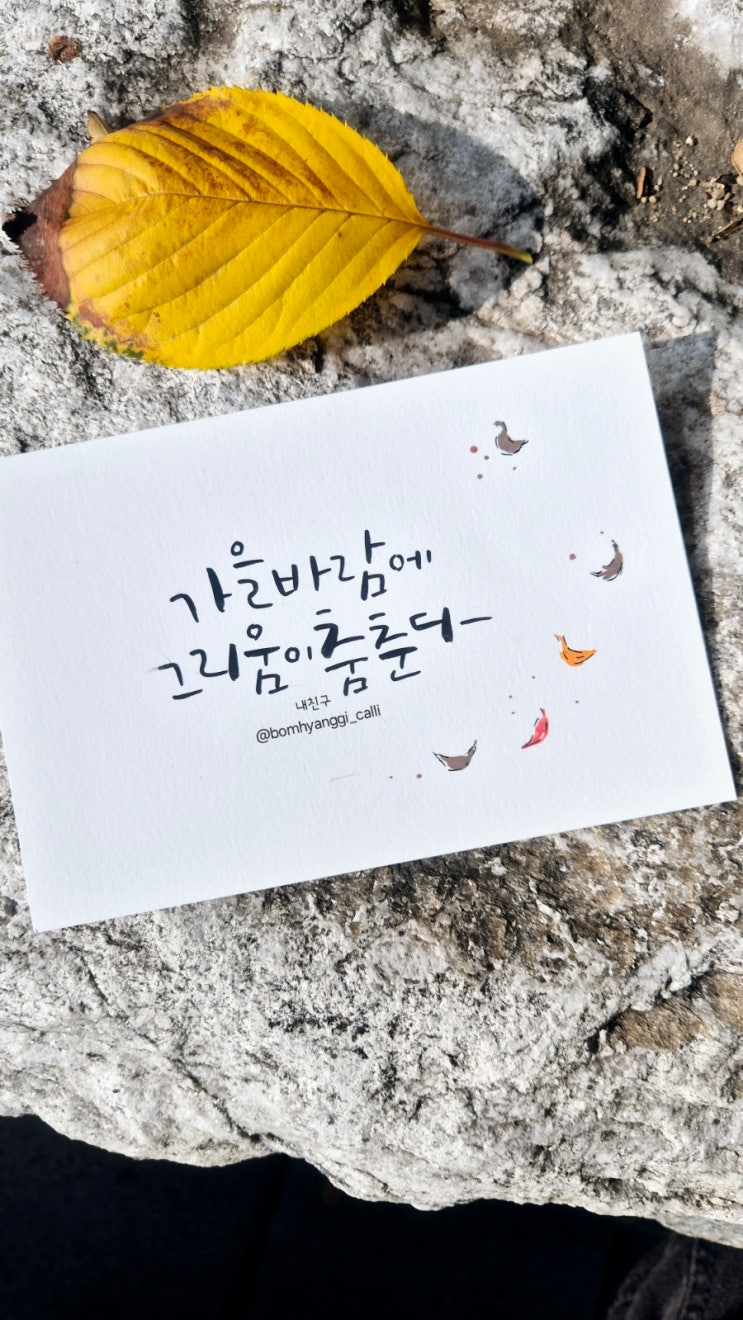 가을바람에
그리움이 춤춘다
내친구
@bomhyanggi_calli